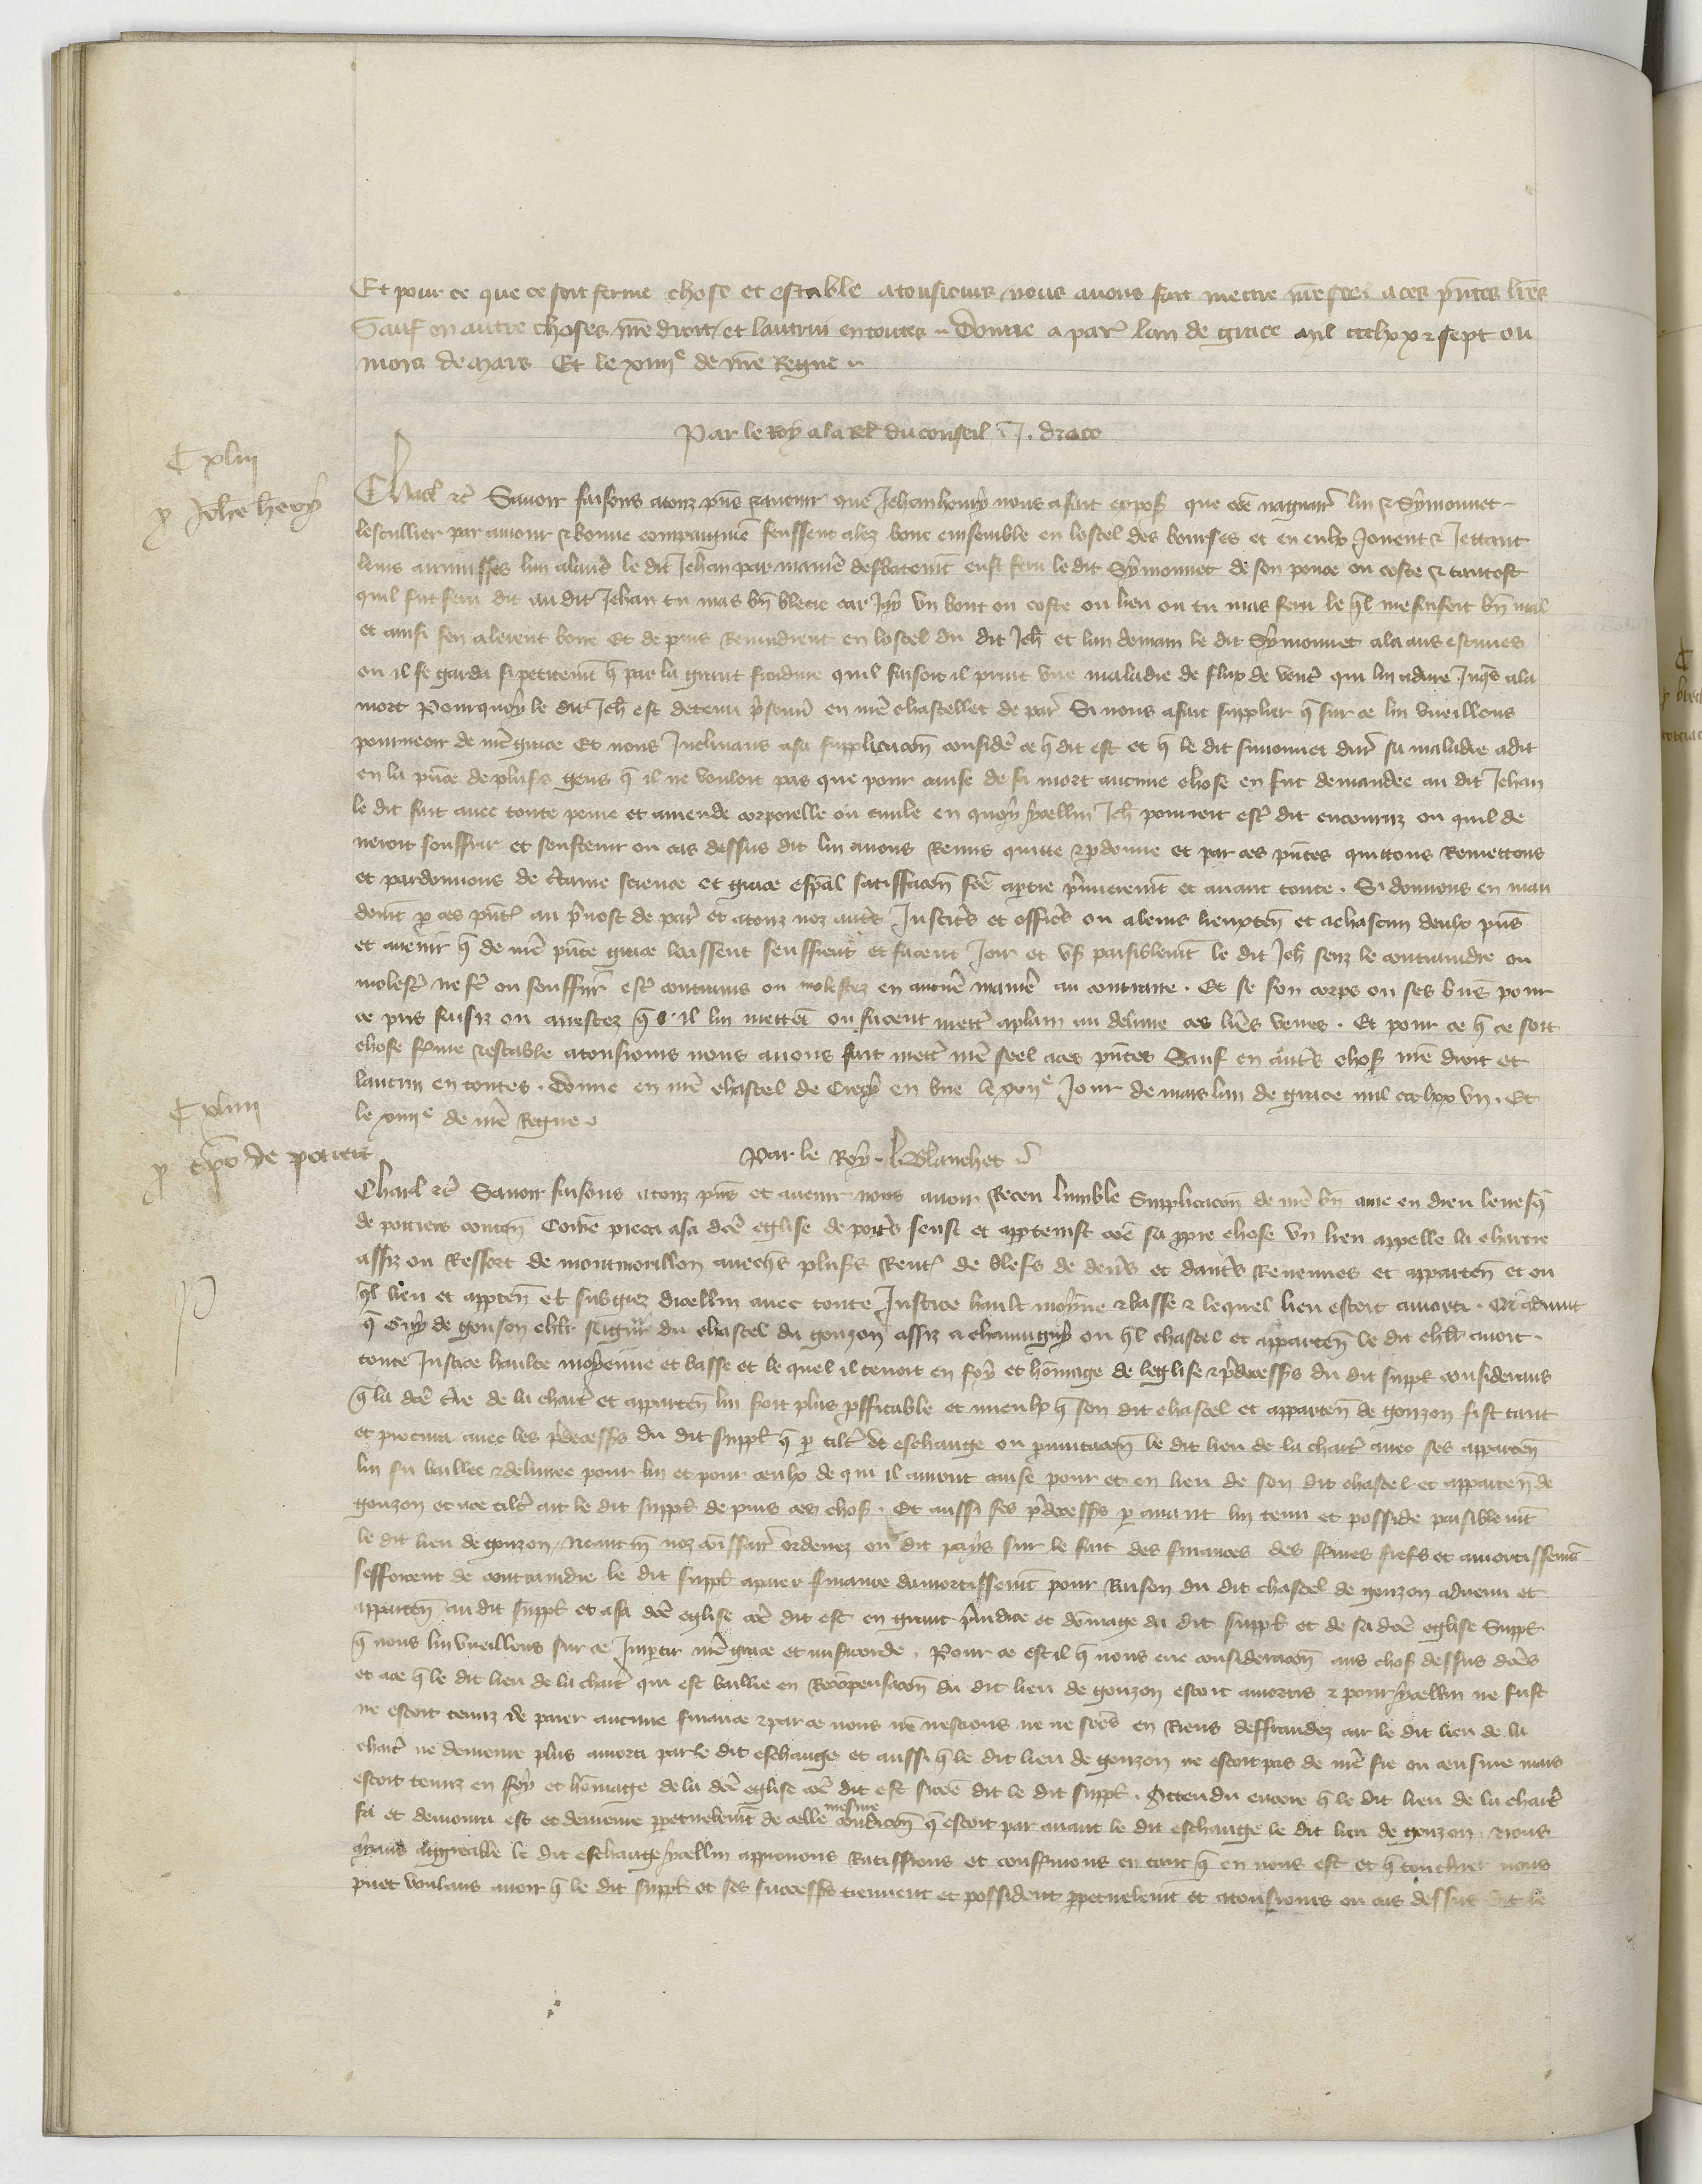 Et pour ce que ce soit ferme chose et estable atousiours nous auons fait mettre nr̃e seel a ces pñtes lr̃es
Sauf en autre choses nr̃e droit et lautrui en toutes Donne a par̃ lan de grace mil ccclxx & sept ou
mois de mars Et le xiiiie de nr̃e Regne
Par le Roy a la Rel̃ du conseil J. draco
C xliii
p Jehñ henry
Charl̃ &c̃ Sauoir faisons atouz pñs & auenir que Jehan henry nous a fait exposẽ que cõe naguair̃ lui & Symonnet
lescullier par amour & bonne compaignie feussent alez boire ensemble en lostel des bourses et en eulx Jouent & Jettant
leurs aumusses lun a lautr̃ le dit Jehan par manier̃ desbatemt̃ eust feru le dit Symonnet de son pouce ou coste & tantost
quil fut feru dit au dit Jehan tu mas bñ blecie car Jay un bout ou coste ou lieu ou tu mas feru le ql̃ me faisoit bñ mal
et ainsi sen alerent boire Et de puis Reuindrent en lostel du dit Jeh̃ et lan demain le dit Symonnet ala aus estuues
ou il se garda si petitemt̃ q̃ par la grant froidure quil faisoit il print vne maladie de flux de ventr̃ qui lui a dure Jusq̃s ala
mort Pourquoy le dit Jeh̃ est detenu p̃sonnier en nr̃e chastellet de par̃ Si nous a fait supplier q̃ sur ce lui vueillons
pourueoir de nr̃e grace Et nous Inclinans a sa supplicacõn considere ce q̃ dit est et q̃ le dit simonnet dur̃ sa maladie a dit
en la pñce de plusrs gens q̃ il ne vouloit pas que pour cause de sa mort aucune chose en fut demandee au dit Jehan
le dit fait auec toute peine et amende corporelle ou ciuile en quoy ycellui Jeh̃ pourroit estr̃ dit encouruz ou quil de
ueroit souffrir et soustenir ou cas dessus dit lui auons Remis quitte & pdonne et par ces pñtes quittons Remettons
et pardonnons de c̃taine science et grace esp̃al satisfacõn fc̃e a ptie p̃mieremt̃ et auant toute . Si donnons en man
demt̃ p ces pñt̃ au p̃uost de par̃ et atouz noz autr̃s Justicrs et officrs ou a leurs lieuxteñ et a chascun deulx pñs
et auenir q̃ de nr̃e pñte grace laissent seuffrent et facent Joir et usẽ paisiblemt̃ le dit Jeh̃ senz le contraindre ou
molestr̃ ne fer̃ ou souffrir estr̃ contrains ou molestez en aucuñ manier̃ au contraire . Et se son corps ou ses biẽs pour
ce pris saisiz ou arrestez q̃ il lui mettent ou facent mettr̃ a plain au deliure ces lr̃es veues . Et pour ce q̃ ce soit
chose ferme & estable atousiours nous auons fait mettr̃ nr̃e seel a ces pñtes Sauf en autr̃s chosẽ nr̃e droit et
lautrui en toutes . Donne en nr̃e chastel de Crecy en brie le xviie Jour de mars lan de grace mil ccclxx vii . Et
le xiiiie de nr̃e Regne
Par le Roy . L. Blanchet
C xliiii
p epõ de poitiers
Charl̃ &c̃ Sauoir faisons atouz pñs et auenir nous auoir Receu lumble Supplicacõn de nr̃e bñ ame en dieu leuesq̃
de poitiers conteñ Cõme pieca a sa dc̃e eglise de poitr̃s feust et apptenist cõe sa ppre chose vn lieu appelle la chartre
assiz ou Ressort de montmorillon auechs plusrs Rent̃ de blefs de deñrs et dautr̃s Reuenues et apparteñ et ou
ql̃ lieu et appteñ et subgiez dicellui auec toute Justice hault moyenne & basse & lequel lieu estoit amorti . Et aduint
q̃ Guy de gonson chlr̃ seigñr du chastel du gonzon assiz a chauuigny ou ql̃ chastel et apparteñ le dit chlr̃ auoit .
toute Justice haulte moyenne et basse et le quel il tenoit en foy et hõmage de leglise & p̃decessrs du dit suppl̃ considerans
q̃ la dc̃e tr̃e de la chartr̃ et apparteñ lui soit plus pffitable et mieulx q̃ son dit chastel et apparteñ de gonzon fist tant
et procura auec les p̃decessrs du dit suppl̃ q̃ p tiltr̃ de eschange ou pmutacõn le dit lieu de la chartr̃ auec ses apparteñ
lui fu baillee & deliuree pour lui et pour ceulx de qui il auront cause pour et en lieu de son dit chastel et apparteñ de
gonzon et a ce tiltr̃ ait le dit suppl̃ de puis ces chosẽ . Et aussi ses p̃decessrs p auant lui tenu et posside paisiblemt̃
le dit lieu de gonzon . Neantm̃ noz cõissair̃ ordenez ou dit pays sur le fait des finances des frans fiefs et amortissemẽs
sefforcent de contraindre le dit suppl̃ a paier finance damortissemt̃ pour Raison du dit chastel de gonzon aduenu et
apparteñ au dit suppl̃ et a sa dc̃e eglise cõe dit est en grant p̃iudice et dõmage du dit suppl̃ et de sa dc̃e eglise Suppl̃
q̃ nous lui vueillons sur ce Impartir nr̃e grace et misericorde . Pour ce est il q̃ nous eue consideracõn aus chosẽ dessus dc̃es
et a ce q̃ le dit lieu de la chartr̃ qui est baillie en Recõpensacõn du dit lieu de gonzon estoit amortis & pour ycellui ne fust
ne estoit tenuz de paier aucune finance & par ce nous nẽ nestions ne ne soẽs en Riens deffraudez car le dit lieu de la
chartr̃ ne demeure plus amorti par le dit eschange et aussi q̃ le dit lieu de gonzon ne estoit pas de nr̃e fie ou censiue mais
estoit tenuz en foy et hõmage de la dc̃e eglise cõe dit est sicõe dit le dit suppl̃ . Attendu encore q̃ le dit lieu de la chartr̃
fu et demoura est et demeure ppetuelemt̃ de celle mesme condicõn q̃ estoit par auant le dit eschange le dit lieu de gonzon . Nous
ayans aggreable le dit eschange ycellui approuuons Ratiffions et confirmons en tant q̃ en nous est et q̃ toucher nous
puet voulans auoir q̃ le dit suppl̃ et ses successrs tiennent et possident ppetuelemt̃ et atousiours ou cas dessus dit le